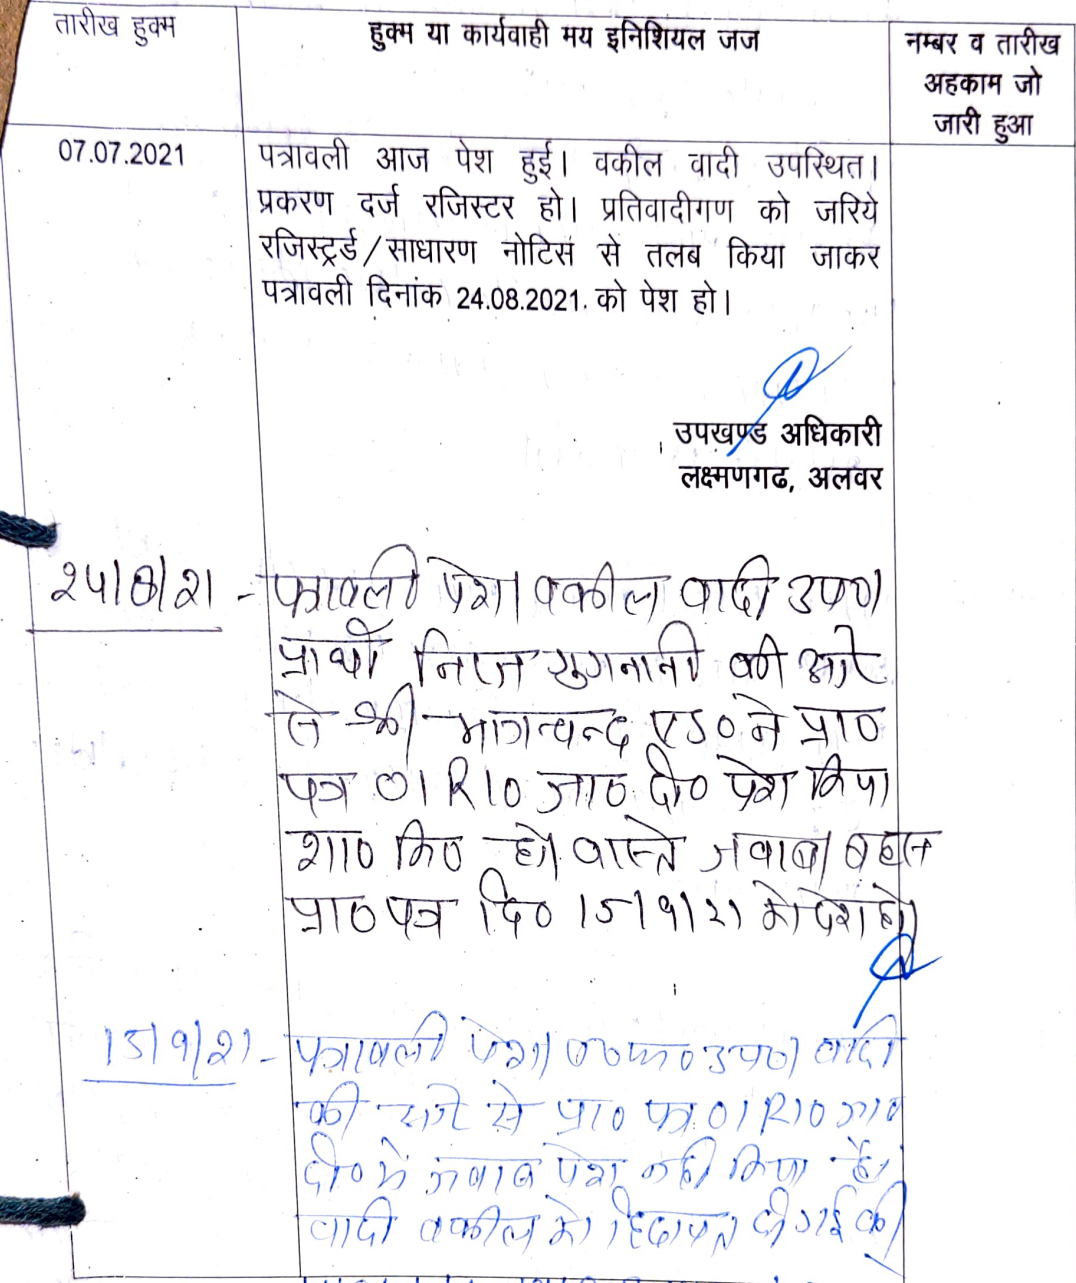 तारीख हुक्म
हुक्म या कार्यवाही मय इनिशियल जज
नम्बर व तारीख
अहकाम जो
जारी हुआ
07.07.2021
पत्रावली आज पेश हुई। वकील वादी उपस्थित।
प्रकरण दर्ज रजिस्टर हो। प्रतिवादीगण को जरिये
रजिस्ट्रर्ड/साधारण नोटिस से तलब किया जाकर
पत्रावली दिनांक 24.08.2021. को पेश हो।
उपखण्ड अधिकारी
लक्ष्मणगढ, अलवर
२५/8/२१ - पत्रावली पेश। वकील वादी उप०।
प्रार्थी सुगनानी की ओर
से श्री भागचन्द एड० ने प्रा०
पत्र O1 R10 जा० दी० पेश किया
शा० मि० हो। वास्ते जवाब/बहस
प्रा० पत्र दि० 15/9/21 को पेश हो।
15/9/21 - पत्रावली पेश। व०फ० उप०। वादी
की ओर से प्रा० पत्र O1 R10 जा०
दी० में जवाब पेश नही किया है।
वादी वकील को हिदायत दी गई की